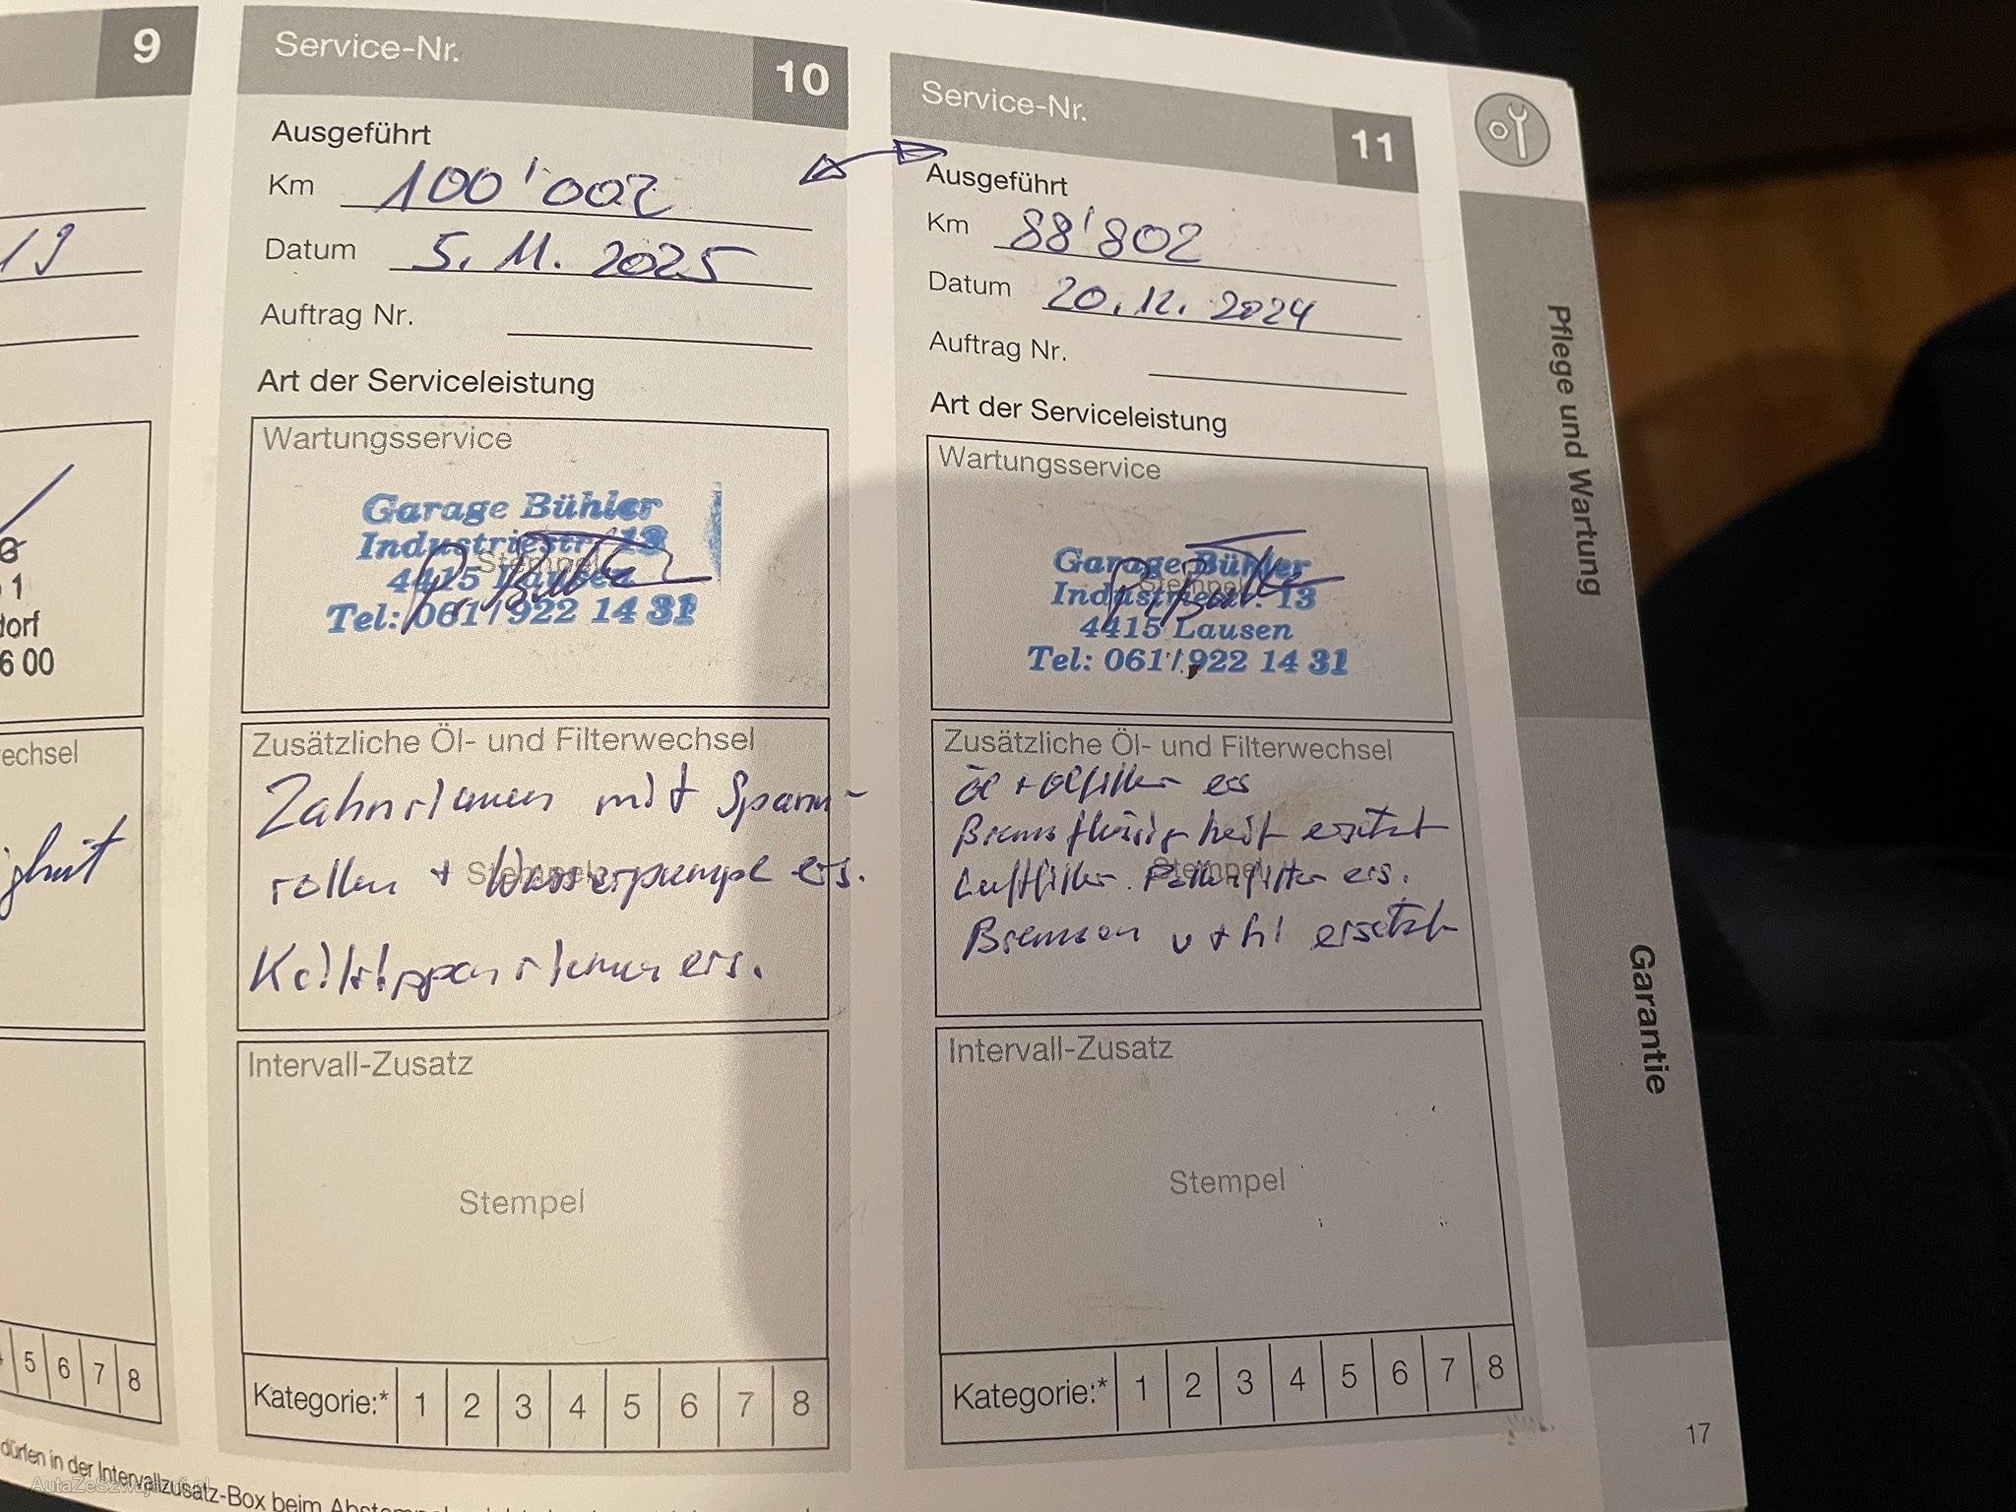 9
19
G
1
dorf
6 00
echsel
5 6 7 8
Service-Nr. 10
Ausgeführt
Km 100'002
Datum 5. 11. 2025
Auftrag Nr.
Art der Serviceleistung
Wartungsservice
Garage Bühler
Industriestr. 13
Stempel
4415 Lausen
Tel: 061/922 14 31
Zusätzliche Öl- und Filterwechsel
Zahnriemen mit Spann-
rollen + Wasserpumpe ers.
Stempel
Keilrippenriemen ers.
Intervall-Zusatz
Stempel
Kategorie:* 1 2 3 4 5 6 7 8
Service-Nr. 11
Ausgeführt
Km 88'802
Datum 20. 12. 2024
Auftrag Nr.
Art der Serviceleistung
Wartungsservice
Garage Bühler
Stempel
Industriestr. 13
4415 Lausen
Tel: 061/922 14 31
Zusätzliche Öl- und Filterwechsel
Öl + Ölfilter ers
Bremsflüssigkeit ersetzt
Luftfilter Pollenfilter ers.
Stempel
Bremsen v + hi ersetzt
Intervall-Zusatz
Stempel
Kategorie:* 1 2 3 4 5 6 7 8
Pflege und Wartung
Garantie
17
dürfen in der Intervallzusatz-Box beim